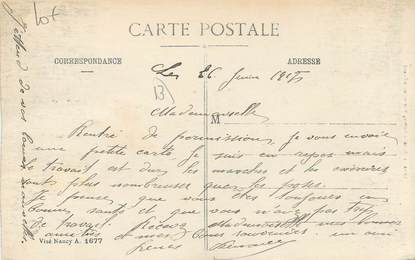 Lot
J'attend de vos bonnes nouvelles.
CARTE POSTALE
CORRESPONDANCE
ADRESSE
Les 26
B
M
Mademoiselle
Rentré de permission, je vous envoie
une petite carte. Je suis en repos mais
le travail est dur, les marches et les exercices
sont plus nombreuses que les
Je pense que vous êtes toujours en
bonne santé et que vous n'avez pas trop
de travail. Recevez Mademoiselle mes bonnes
amitiés et mes bons souvenirs un ami
Visé Nancy A. 1677